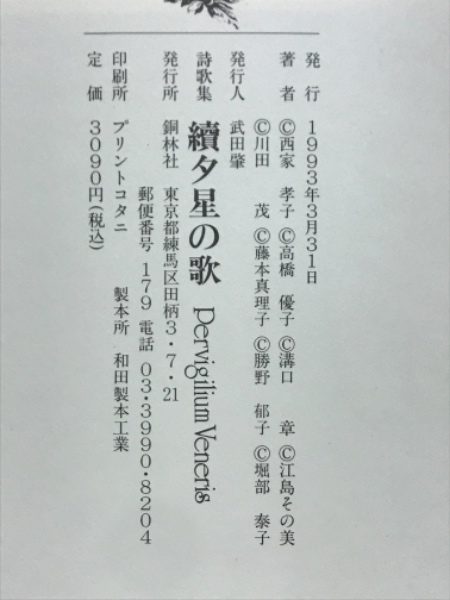 発行 1993年3月31日
著者 ©西家 孝子 ©高橋 優子 ©溝口 章 ©江島その美
©川田 茂 ©藤本真理子 ©勝野 郁子 ©堀部 泰子
発行人 武田肇
詩歌集 續夕星の歌 Pervigilium Veneris
発行所 銅林社 東京都練馬区田柄3・7・21
郵便番号 179 電話 03・3990・8204
印刷所 プリントコタニ 製本所 和田製本工業
定価 3090円(税込)